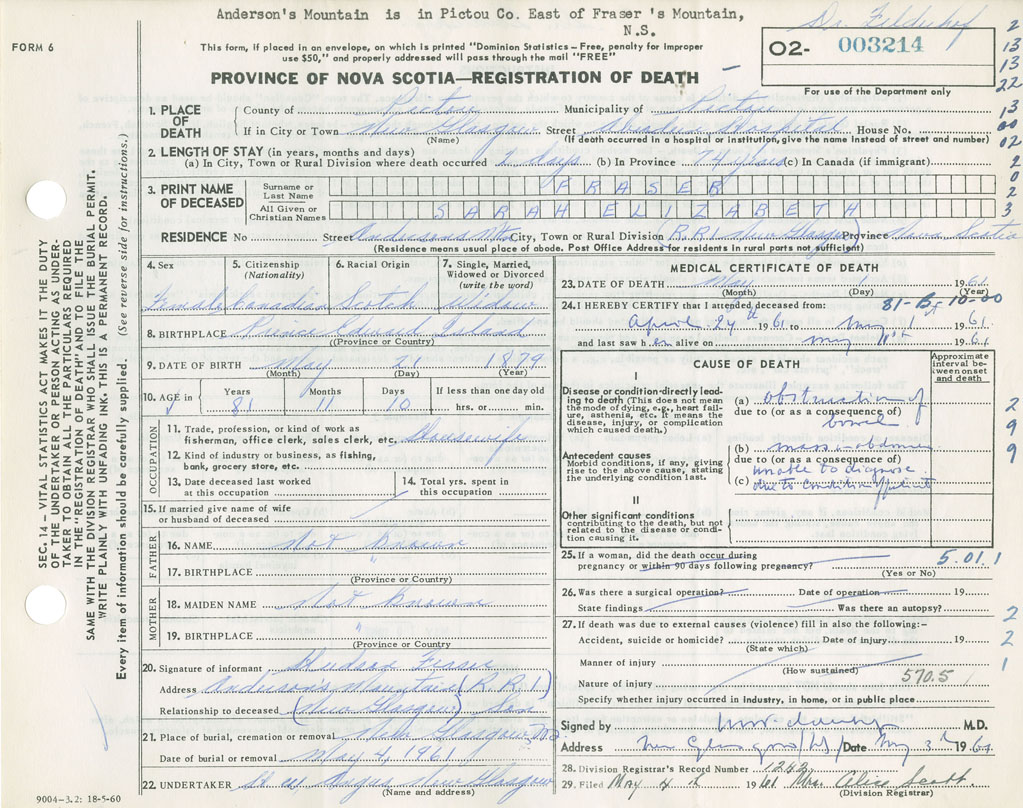 Anderson's Mountain is in Pictou Co. East of Fraser 's Mountain, N.S.
FORM 6
This form, if placed in an envelope, on which is printed "Dominion Statistics – Free, penalty for improper
use $50," and properly addressed will pass through the mail "FREE"
PROVINCE OF NOVA SCOTIA—REGISTRATION OF DEATH
O2- 003214
For use of the Department only
2
13
13
22
13
00
02
2
0
2
3
2
9
9
2
2
1
SEC. 14 – VITAL STATISTICS ACT MAKES IT THE DUTY
OF THE UNDERTAKER OR PERSON ACTING AS UNDER-
TAKER TO OBTAIN ALL THE PARTICULARS REQUIRED
IN THE "REGISTRATION OF DEATH" AND TO FILE THE
SAME WITH THE DIVISION REGISTRAR WHO SHALL ISSUE THE BURIAL PERMIT.
WRITE PLAINLY WITH UNFADING INK. THIS IS A PERMANENT RECORD.
Every item of information should be carefully supplied. (See reverse side for instructions.)
1. PLACE OF DEATH
County of Pictou Municipality of Pictou
If in City or Town New Glasgow Street Aberdeen Hospital House No.
(Name) (If death occurred in a hospital or institution, give the name instead of street and number)
2. LENGTH OF STAY (in years, months and days)
(a) In City, Town or Rural Division where death occurred days (b) In Province 74 years (c) In Canada (if immigrant)
3. PRINT NAME OF DECEASED
Surname or Last Name FRASER
All Given or Christian Names SARAH ELIZABETH
RESIDENCE No Street Andersons Mt. City, Town or Rural Division R.R.1 New Glasgow Province Nova Scotia
(Residence means usual place of abode. Post Office Address for residents in rural parts not sufficient)
4. Sex 5. Citizenship (Nationality) 6. Racial Origin 7. Single, Married, Widowed or Divorced (write the word)
Female Canadian Scotch Widow
8. BIRTHPLACE Prince Edward Island
(Province or Country)
9. DATE OF BIRTH May 21 1879
(Month) (Day) (Year)
10. AGE in Years Months Days If less than one day old
81 11 10 hrs. or min.
OCCUPATION
11. Trade, profession, or kind of work as
fisherman, office clerk, sales clerk, etc. Housewife
12. Kind of industry or business, as fishing,
bank, grocery store, etc.
13. Date deceased last worked
at this occupation
14. Total yrs. spent in
this occupation
15. If married give name of wife
or husband of deceased
FATHER
16. NAME Not Known
17. BIRTHPLACE "
(Province or Country)
MOTHER
18. MAIDEN NAME Not Known
19. BIRTHPLACE "
(Province or Country)
20. Signature of informant Hudson Fraser
Address Anderson's Mountain (R.R.1)
Relationship to deceased (New Glasgow) Son
21. Place of burial, cremation or removal New Glasgow N.S.
Date of burial or removal May 4, 1961
22. UNDERTAKER Angus New Glasgow
(Name and address)
9004-3.2: 18-5-60
MEDICAL CERTIFICATE OF DEATH
23. DATE OF DEATH May 1 1961
(Month) (Day) (Year)
24. I HEREBY CERTIFY that I attended deceased from:
April 24th 1961 to May 1 1961
and last saw her alive on May 1st 1961
CAUSE OF DEATH
Approximate interval between onset and death
I
Disease or condition directly lead-
ing to death (This does not mean
the mode of dying, e.g., heart fail-
ure, asthenia, etc. It means the
disease, injury, or complication
which caused death.)
(a) obstruction of
due to (or as a consequence of)
bowel
Antecedent causes
Morbid conditions, if any, giving
rise to the above cause, stating
the underlying condition last.
(b) mass abdomen
due to (or as a consequence of)
unable to diagnose
(c) due to condition of patient
II
Other significant conditions
contributing to the death, but not
related to the disease or condi-
tion causing it.
25. If a woman, did the death occur during
pregnancy or within 90 days following pregnancy? 5.01.1
(Yes or No)
26. Was there a surgical operation? Date of operation 19
State findings Was there an autopsy?
27. If death was due to external causes (violence) fill in also the following:–
Accident, suicide or homicide? Date of injury 19
(State which)
Manner of injury
(How sustained)
Nature of injury 570.5
Specify whether injury occurred in industry, in home, or in public place
Signed by M.D.
Address New Glasgow NS Date May 3rd 1961
28. Division Registrar's Record Number 1243
29. Filed May 4th 1961 Mrs. Alice Scott
(Division Registrar)